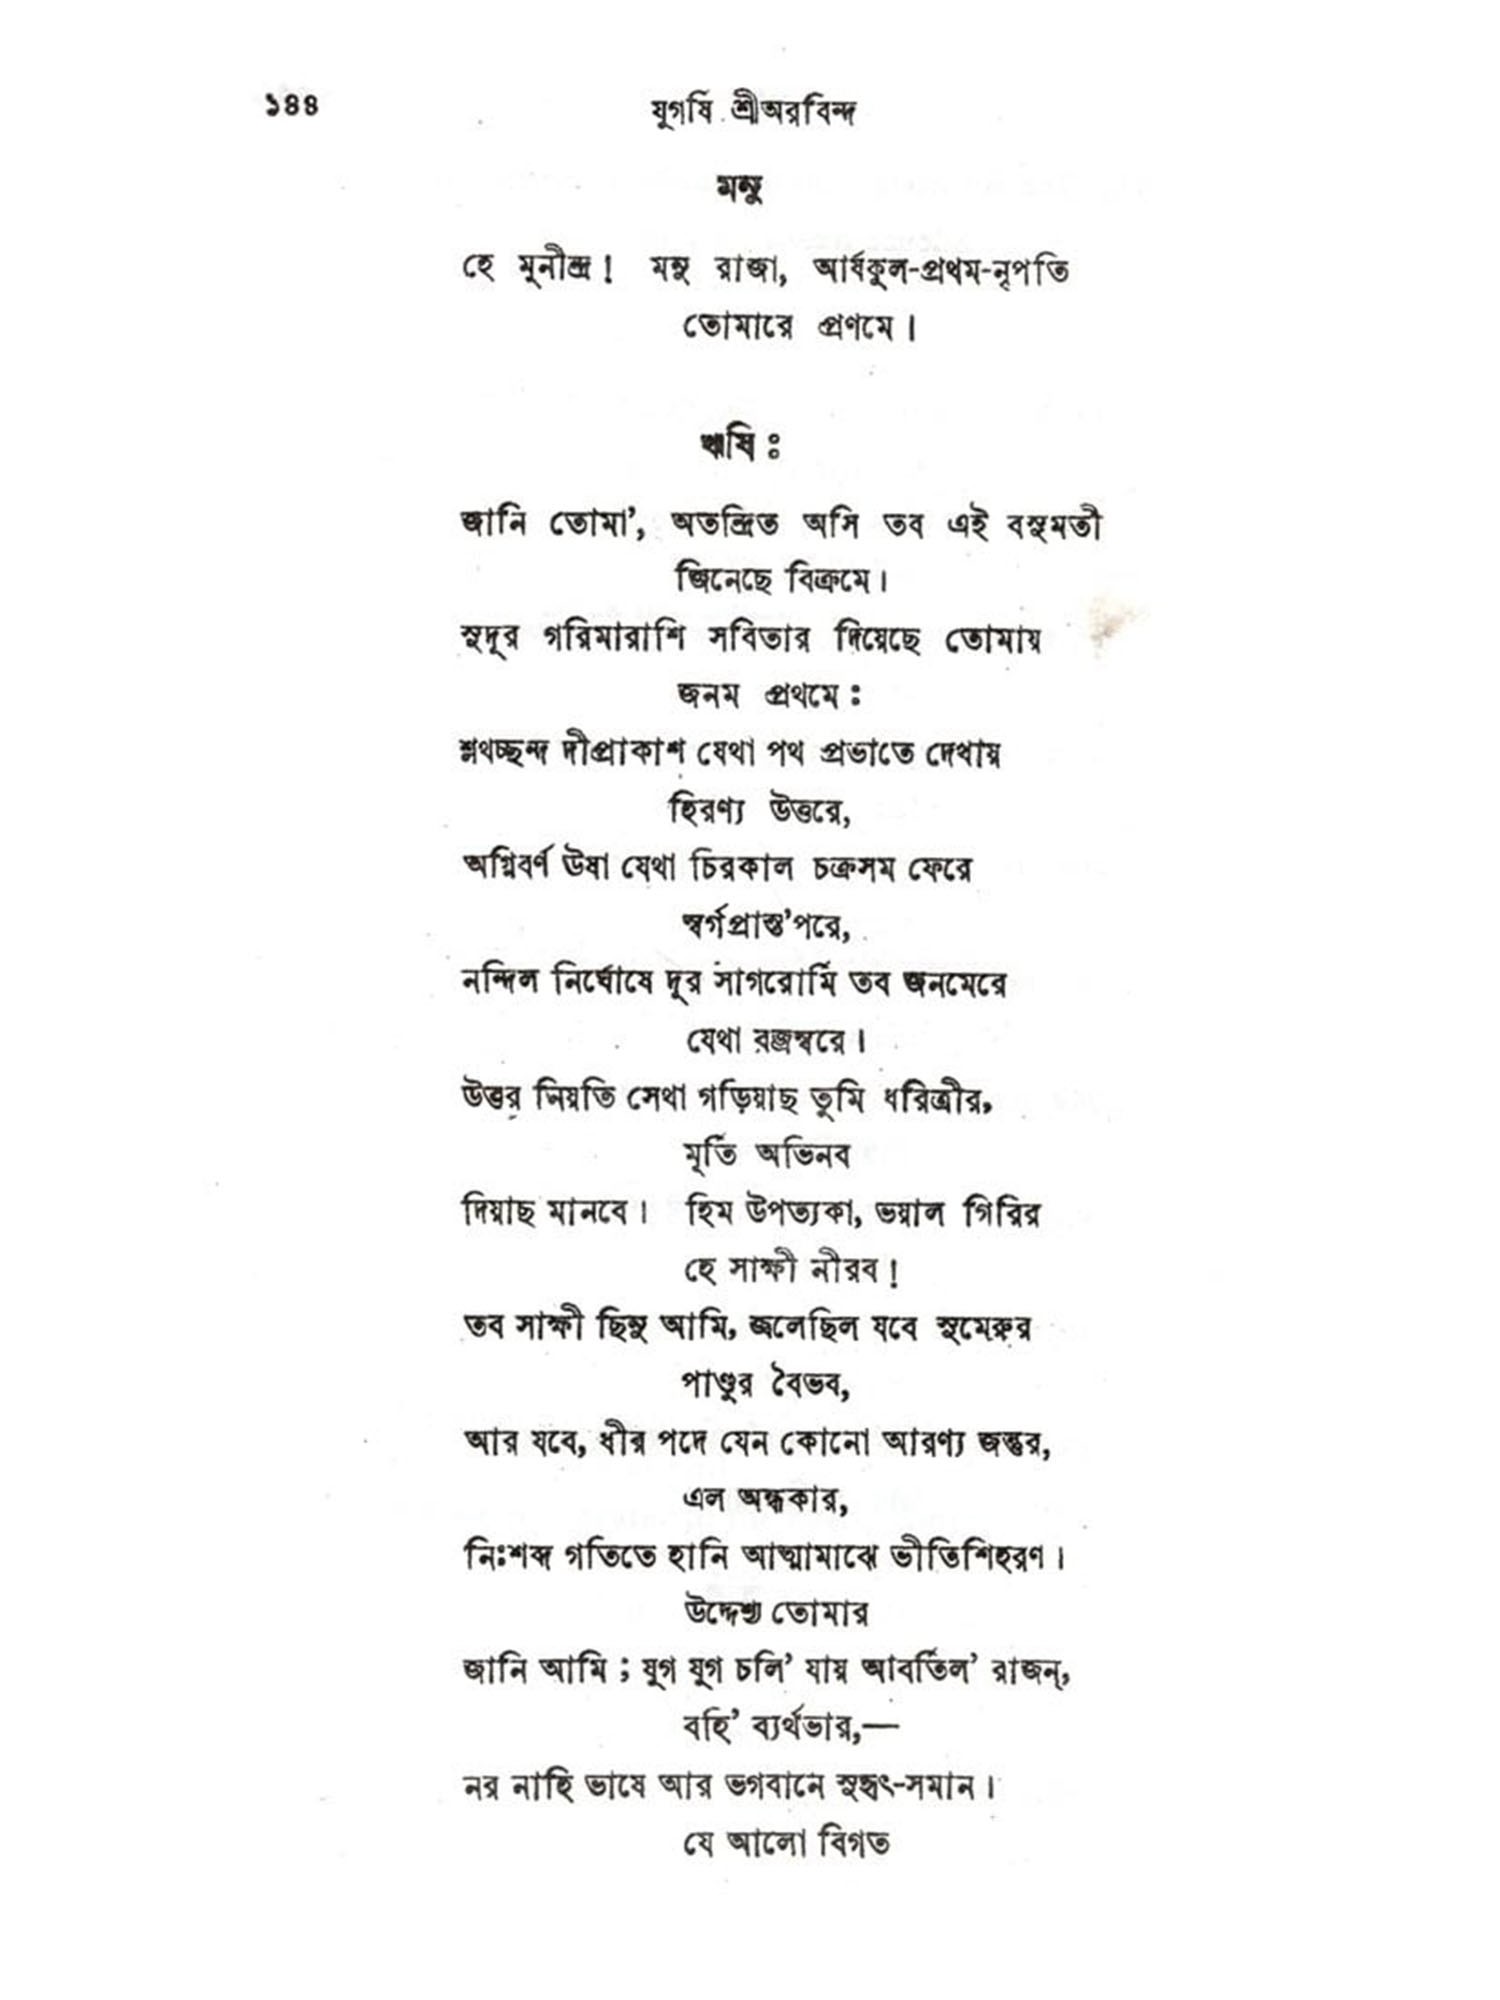 ১৪৪
যুগর্ষি শ্রীঅরবিন্দ
মনু
হে মুনীন্দ্র! মনু রাজা, আর্যকুল-প্রথম-নৃপতি
তোমারে প্রণমে।
ঋষি :
জানি তোমা’, অতন্দ্রিত অসি তব এই বসুমতী
জিনেছে বিক্রমে।
সুদূর গরিমারাশি সবিতার দিয়েছে তোমায়
জনম প্রথমে :
শ্লথচ্ছন্দ দীপ্রাকাশ যেথা পথ প্রভাতে দেখায়
হিরণ্য উত্তরে,
অগ্নিবর্ণ ঊষা যেথা চিরকাল চক্রসম ফেরে
স্বর্গপ্রান্ত’পরে,
নন্দিল নির্ঘোষে দূর সাগরোর্মি তব জনমেরে
যেথা বজ্রস্বরে।
উত্তর নিয়তি সেথা গড়িয়াছ তুমি ধরিত্রীর,
মূর্তি অভিনব
দিয়াছ মানবে। হিম উপত্যকা, ভয়াল গিরির
হে সাক্ষী নীরব!
তব সাক্ষী ছিনু আমি, জ্বলেছিল যবে সুমেরুর
পাণ্ডুর বৈভব,
আর যবে, ধীর পদে যেন কোনো আরণ্য জন্তুর,
এল অন্ধকার,
নিঃশব্দ গতিতে হানি আত্মামাঝে ভীতিশিহরণ।
উদ্দেশ্য তোমার
জানি আমি; যুগ যুগ চলি’ যায় আবর্তিল’ রাজন্,
বহি’ ব্যর্থভার,—
নর নাহি ভাষে আর ভগবানে সুহৃৎ-সমান।
যে আলো বিগত